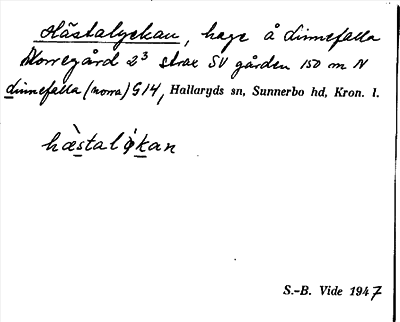 Hästalyckan, hage å Linnefalla
Norregård 2³ strax SV gården 150 m N
Linnefalla (norra) G14, Hallaryds sn, Sunnerbo hd, Kron. l.
hæ̀stalýkan
S.-B. Vide 1947